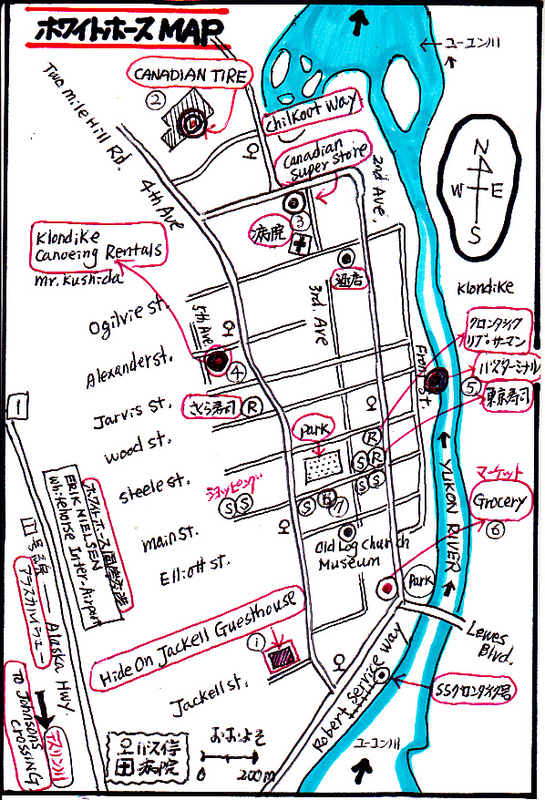 ホワイトホース MAP
CANADIAN TIRE
②
Two mile Hill Rd.
4th Ave
Chilkoot Way
Canadian
Super Store
2nd Ave
ユーコン川
N
W E
S
病院
③
酒店
Klondike
Canoeing Rentals
Mr. Kushida
Ogilvie st.
5th Ave
3rd. Ave
Alexander st.
④
Front St.
Klondike
クロンダイク
リブ・サーマン
バスターミナル
⑤
東京寿司
Jarvis st.
さくら寿司 R
wood st.
Park
R
S R
S S
steele st.
ショッピング
S S
S
main st.
Elliott st.
Old Log Church
Museum
マーケット
Grocery
⑥
YUKON RIVER
Park
Lewes
Blvd.
1
ホワイトホース国際空港
ERIK NIELSEN
Whitehorse Inter-Airport
1号公路
アラスカハイウェー
Alaska Hwy.
Hide On Jackell Guesthouse
①
Jackell st.
Robert Service Way
SSクロンダイク号
ユーコン川
To Johnsons
Crossing
テスリン川
バス停
病院
おおよそ
0 200m